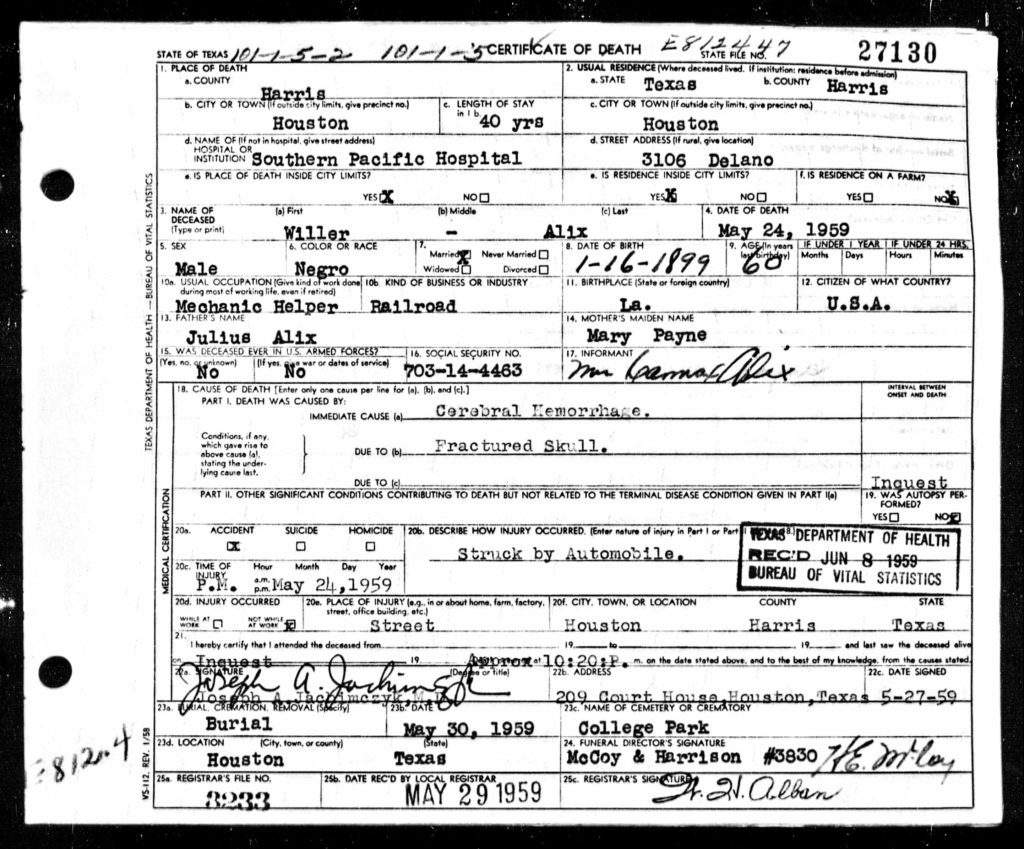 STATE OF TEXAS 101-1-5-2 101-1-5 CERTIFICATE OF DEATH E812447 STATE FILE NO. 27130
1. PLACE OF DEATH
a. COUNTY
Harris
2. USUAL RESIDENCE (Where deceased lived. If institution: residence before admission)
a. STATE Texas b. COUNTY Harris
b. CITY OR TOWN (If outside city limits, give precinct no.)
Houston
c. LENGTH OF STAY in 1 b.
40 yrs
c. CITY OR TOWN (If outside city limits, give precinct no.)
Houston
d. NAME OF (If not in hospital, give street address)
HOSPITAL OR
INSTITUTION Southern Pacific Hospital
d. STREET ADDRESS (If rural, give location)
3106 Delano
e. IS PLACE OF DEATH INSIDE CITY LIMITS?
YES X NO
e. IS RESIDENCE INSIDE CITY LIMITS?
YES X NO
f. IS RESIDENCE ON A FARM?
YES NO X
3. NAME OF DECEASED (Type or print)
(a) First (b) Middle (c) Last
Willer - Alix
4. DATE OF DEATH
May 24, 1959
5. SEX
Male
6. COLOR OR RACE
Negro
7.
Married X Never Married
Widowed Divorced
8. DATE OF BIRTH
1-16-1899
9. AGE (In years last birthday)
60
IF UNDER 1 YEAR IF UNDER 24 HRS.
Months Days Hours Minutes
10a. USUAL OCCUPATION (Give kind of work done during most of working life, even if retired)
Mechanic Helper
10b. KIND OF BUSINESS OR INDUSTRY
Railroad
11. BIRTHPLACE (State or foreign country)
La.
12. CITIZEN OF WHAT COUNTRY?
U.S.A.
13. FATHER'S NAME
Julius Alix
14. MOTHER'S MAIDEN NAME
Mary Payne
15. WAS DECEASED EVER IN U.S. ARMED FORCES?
(Yes, no, or unknown) (If yes, give war or dates of service)
No No
16. SOCIAL SECURITY NO.
703-14-4463
17. INFORMANT
Alix
18. CAUSE OF DEATH [Enter only one cause per line for (a), (b), and (c).]
PART I. DEATH WAS CAUSED BY:
IMMEDIATE CAUSE (a) Cerebral Hemorrhage.
INTERVAL BETWEEN ONSET AND DEATH
Conditions, if any, which gave rise to above cause (a), stating the underlying cause last.
DUE TO (b) Fractured Skull.
DUE TO (c)
Inquest
PART II. OTHER SIGNIFICANT CONDITIONS CONTRIBUTING TO DEATH BUT NOT RELATED TO THE TERMINAL DISEASE CONDITION GIVEN IN PART I(a)
19. WAS AUTOPSY PERFORMED?
YES NO X
20a. ACCIDENT SUICIDE HOMICIDE
X
20b. DESCRIBE HOW INJURY OCCURRED. (Enter nature of injury in Part I or Part
Struck by Automobile.
TEXAS DEPARTMENT OF HEALTH
REC'D JUN 8 1959
BUREAU OF VITAL STATISTICS
20c. TIME OF INJURY Hour Month Day Year
P.M. a.m. p.m. May 24, 1959
20d. INJURY OCCURRED
WHILE AT WORK NOT WHILE AT WORK X
20e. PLACE OF INJURY (e.g., in or about home, farm, factory, street, office building, etc.)
Street
20f. CITY, TOWN, OR LOCATION COUNTY STATE
Houston Harris Texas
21.
I hereby certify that I attended the deceased from 19 to 19 and last saw the deceased alive
on Inquest 19 Approx at 10:20:P. m. on the date stated above, and to the best of my knowledge, from the causes stated.
22a. SIGNATURE (Degree or title)
Joseph A. Jachimczyk
Joseph A. Jachimczyk, M.D.
22b. ADDRESS
209 Court House, Houston, Texas
22c. DATE SIGNED
5-27-59
23a. BURIAL, CREMATION, REMOVAL (Specify)
Burial
23b. DATE
May 30, 1959
23c. NAME OF CEMETERY OR CREMATORY
College Park
23d. LOCATION (City, town, or county) (State)
Houston Texas
24. FUNERAL DIRECTOR'S SIGNATURE
McCoy & Harrison #3830 H.E. McCoy
25a. REGISTRAR'S FILE NO.
3233
25b. DATE REC'D BY LOCAL REGISTRAR
MAY 29 1959
25c. REGISTRAR'S SIGNATURE
W. H. Alban
TEXAS DEPARTMENT OF HEALTH — BUREAU OF VITAL STATISTICS
MEDICAL CERTIFICATION
VS-112, REV. 1/58